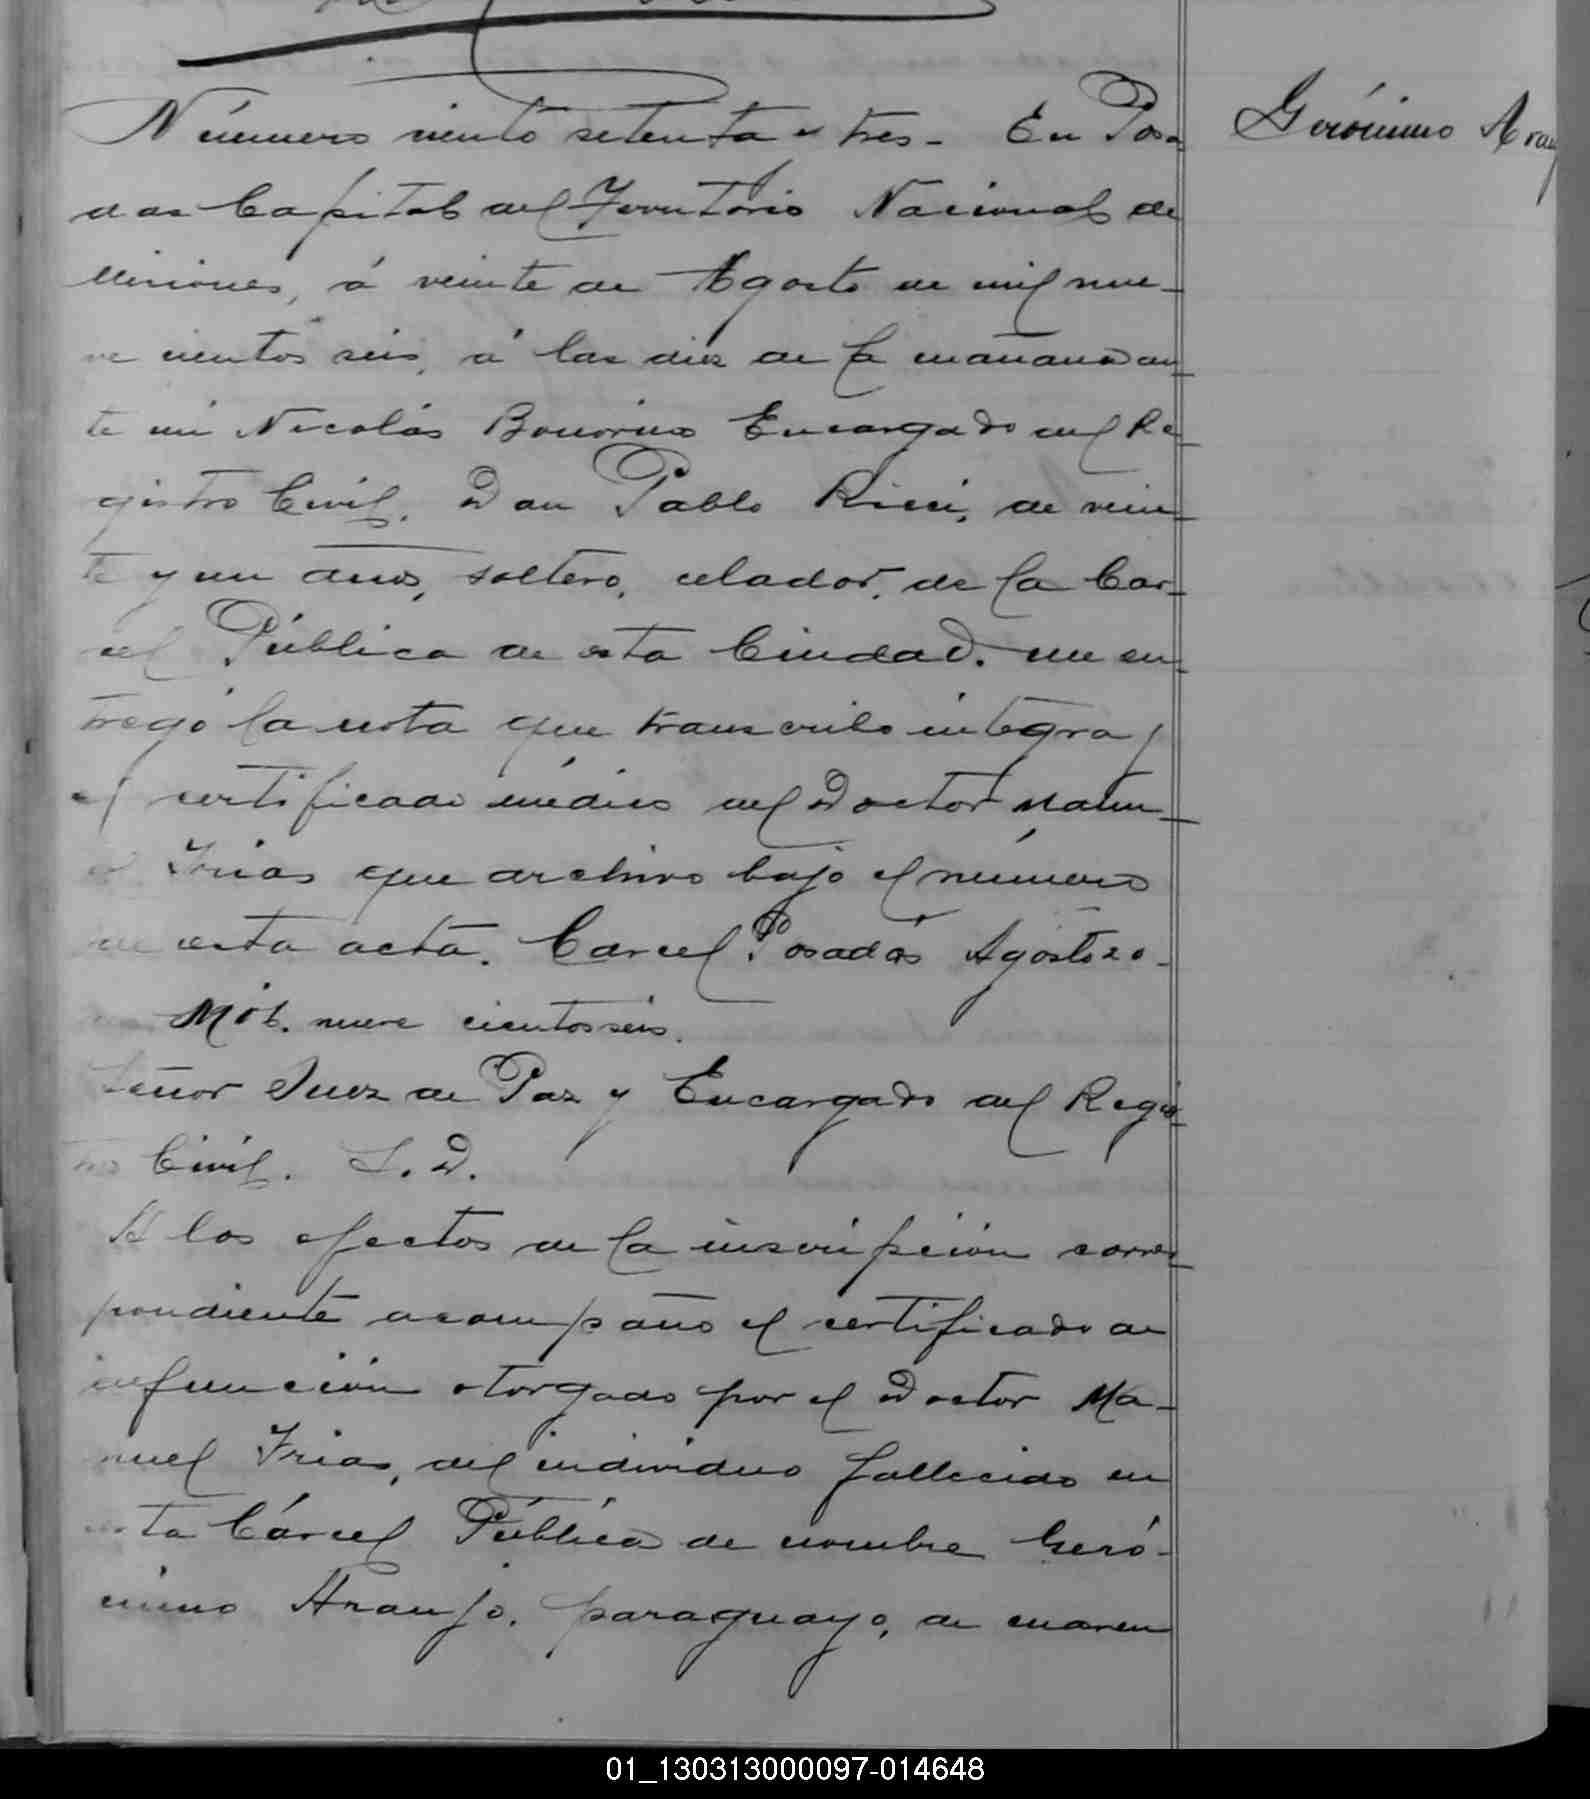 Número ciento setenta y tres- En Posa
das Capital del Territorio Nacional de
Misiones, á veinte de Agosto de mil nue-
ve cientos seis, á las diez de la mañana an
te mi Nicolás Bonorino Encargado del Re
gistro Civil, Don Pablo Ricci, de vein
te y un años, soltero, celador, de la Car-
cel Pública de esta Ciudad. me en
tregó la nota que transcribo integra y
el certificado médico del Doctor Manu
el Frias que archivo bajo el número
de esta acta. Carcel, Posadas Agosto 20-
nueve cientos seis.
Señor Juez de Paz y Encargado del Regis
tro Civil. S. D.
A los efectos de la inscripción corres
pondiente acompaño el certificado de
defunción otorgado por el Doctor Ma-
nuel Frias, del individuo fallecido en
esta Cárcel Pública de nombre Geró-
nimo Araujo, paraguayo, de cuaren
Gerónimo Arauj
01_130313000097-014648